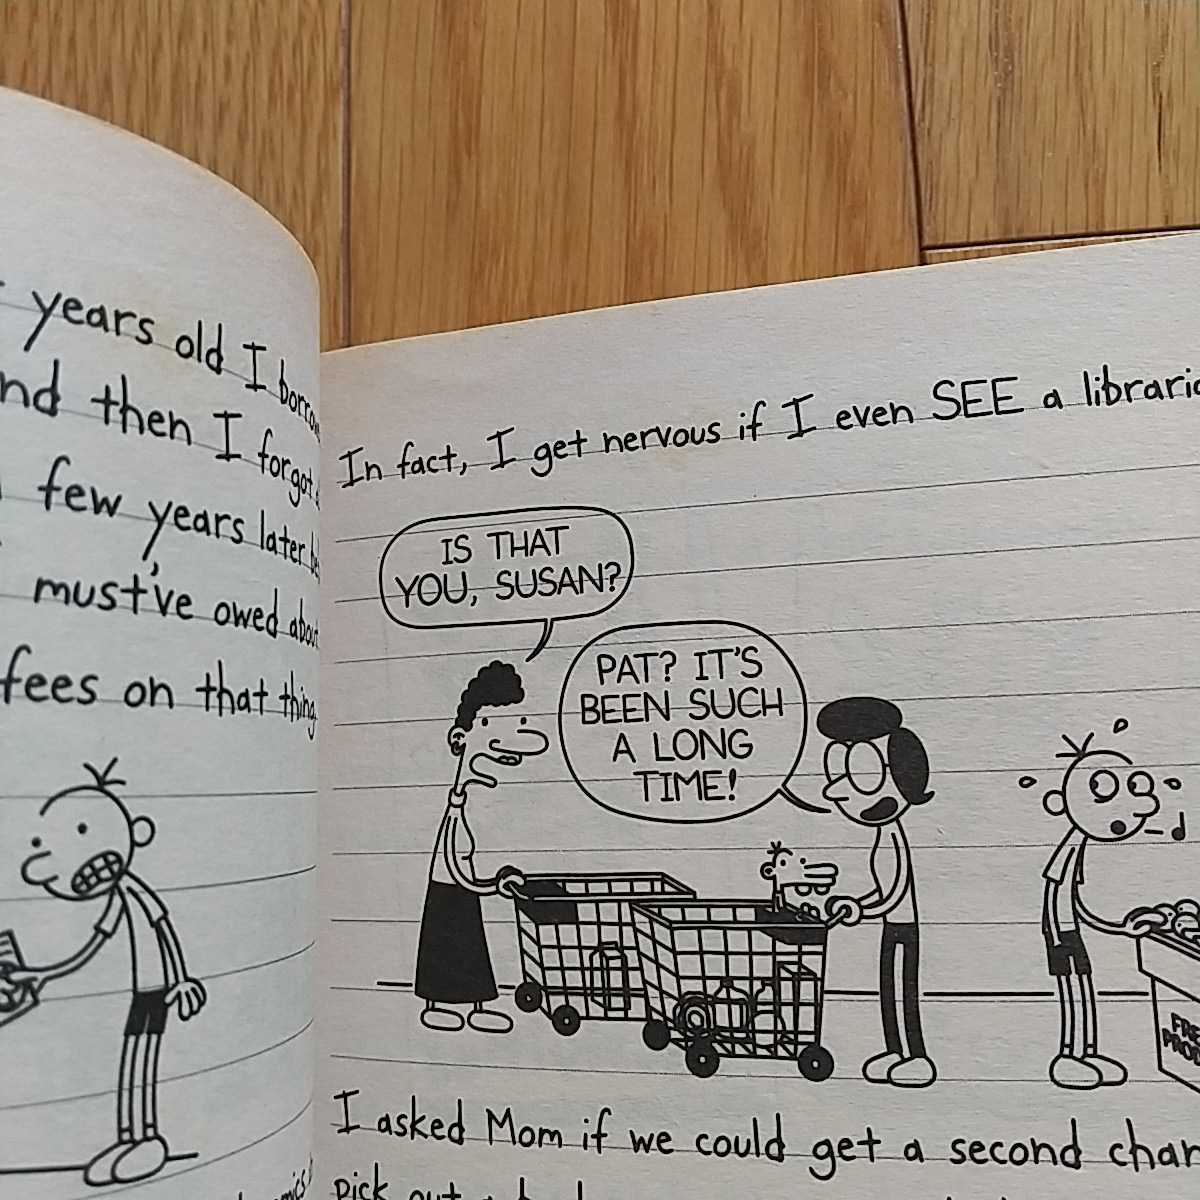 years old I
and then I forgot
few years later
must've owed about
fees on that thing.
In fact, I get nervous if I even SEE a
IS THAT
YOU, SUSAN?
PAT? IT'S
BEEN SUCH
A LONG
TIME!
I asked Mom if we could get a second
pick out a